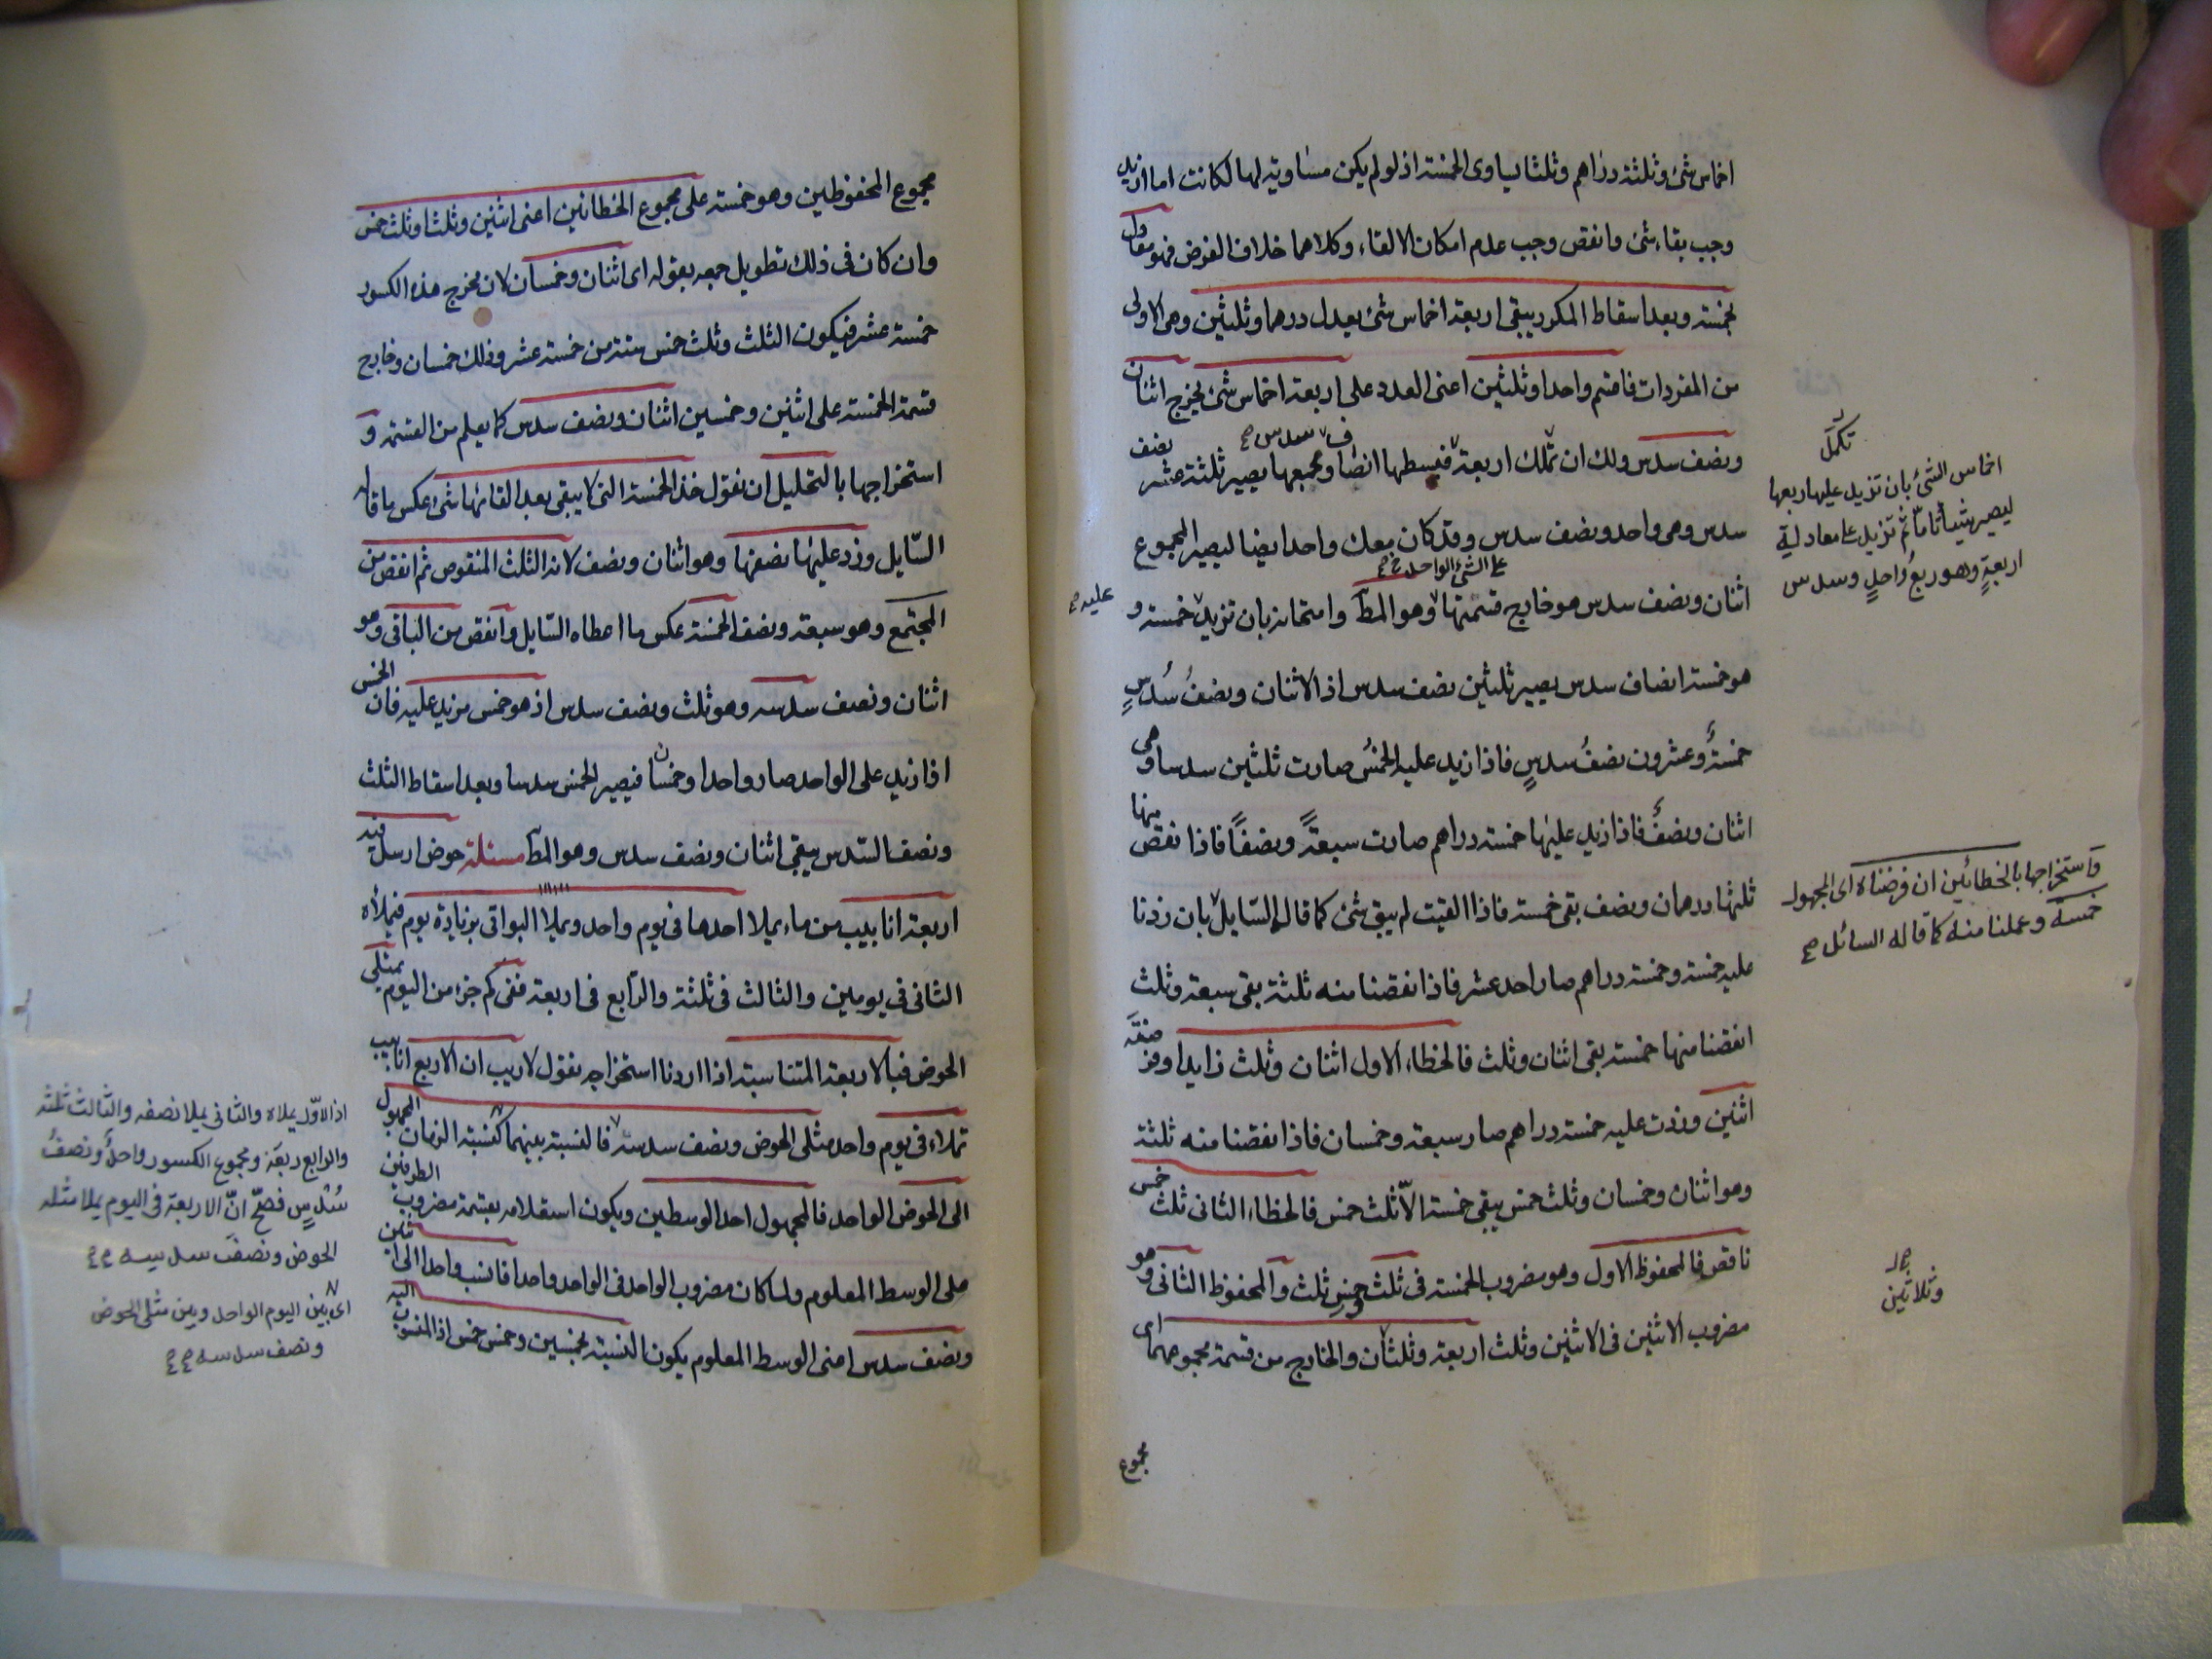 اخماس شئ وثلثة دراهم وثلثا يساوى الخمسة اذ لو لم يكن مساوية لها لكانت اما ازيد
وجب بقاء شئ وانقص وجب عدم امكان الالقاء وكلاهما خلاف الفرض فهو معادل
لخمسة وبعد اسقاط المكرر يبقى اربعة اخماس شئ يعدل درهما وثلثين وهى الاولى
من المفردات فاقسم واحدا وثلثين اعنى العدد على اربعة اخماس شئ يخرج اثنان
ونصف سدس ولك ان تملك اربعة فبسطها انصاف سدس صح وبجمعها يصير ثلثة عشر نصف
سدس وهى واحد ونصف سدس وقد كان معك واحد ايضا ليصير المجموع
اثنان ونصف سدس هو خارج قسمتها على الشئ الواحد صح وهو المط وامتحانه بان تزيد عليه صح خمسة و
هو خمسة انصاف سدس يصير ثلثين نصف سدس اذ الاثنان ونصف سدس
خمسة وعشرون نصف سدس فاذا زيد عليه الخمس صارت ثلثين سدسا وهى
اثنان ونصف فاذا زيد عليها خمسة دراهم صارت سبعة ونصفا فاذا نقص منها
ثلثها درهمان ونصف بقى خمسة فاذا القيت لم يبق شئ كما قال السايل بان زدنا
عليه خمسة وخمسة دراهم صار احد عشر فاذا نقصنا منه ثلثة بقى سبعة وثلث
انقصنا منها خمسة بقى اثنان وثلث فالخطاء الاول اثنان وثلث زايد او فرضته
اثنين وزدت عليه خمسة دراهم صار سبعة وخمسان فاذا نقصنا منه ثلثة
وهو اثنان وخمسان وثلث خمس يبقى خمسة الا ثلث خمس فالخطاء الثانى ثلث خمس
ناقص فالمحفوظ الاول وهو مضروب الخمسة فى ثلث خمس ثلث والمحفوظ الثانى وهو
مضروب الاثنين فى الاثنين وثلث اربعة وثلثان والخارج من قسمة مجموعهما اى
مجموع
تكمل
اخماس الشئ بان تزيد عليها ربعها
ليصير شيأ تاما ثم تزيد على معادلية
اربعة وهو ربع واحد وسدس
واستخراجها بالخطائين ان فرضناه اى المجهول
خمسة وعملنا منه كما قاله السائل صح
وثلاثين
مجموع المحفوظين وهو خمسة على مجموع الخطائين اعنى اثنين وثلثا وثلث خمس
وان كان فى ذلك تطويل جمعه بقوله اى اثنان وخمسان لان مخرج هذه الكسور
خمسة عشر فيكون الثلث وثلث خمس ستة من خمسة عشر وذلك خمسان وخارج
قسمة الخمسة على اثنين وخمسين اثنان ونصف سدس كما يعلم من القسمة و
استخراجها بالتحليل ان نقول خذ الخمسة التى لا يبقى بعد القائها شئ عكس ما قاله
السايل وزد عليها نصفها وهو اثنان ونصف لانه الثلث المنقوص ثم انقص من
المجتمع وهو سبعة ونصف الخمسة عكس ما اعطاه السايل وانقص من الباقى وهو
اثنان ونصف سدسه وهو ثلث ونصف سدس اذ هو خمس مزيد عليه فان الخمس
اذا زيد على الواحد صار واحدا وخمسا فيصير الخمس سدسا وبعد اسقاط الثلث
ونصف السدس يبقى اثنان ونصف سدس وهو المط مسئلة حوض ارسل فيه
اربعة انابيب من ماء يملا احدها فى يوم واحد ويملا البواقى بزيادة يوم فيملأه
الثانى فى يومين والثالث فى ثلثة والرابع فى اربعة ففى كم جزء من اليوم يمتلى
الحوض فبالاربعة المتناسبة اذا اردنا استخراجه نقول لا ريب ان الاربع انابيب
تملاء فى يوم واحد مثلى الحوض ونصف سدسه فالنسبة بينهما كنسبة الزمان المجهول
الى الحوض الواحد فالمجهول احد الوسطين ويكون استعلامه بقسمة مضروب الطرفين
على الوسط المعلوم ولما كان مضروب الواحد فى الواحد واحدا فانسب واحدا الى اثنين
ونصف سدس اعنى الوسط المعلوم يكون النسبة بخمسين وخمس خمس اذ المنسوب اليه
اذ الاول يملاه والثانى يملا نصفه والثالث ثلثه
والرابع ربعه ومجموع الكسور واحد ونصف
سدس فصح ان الاربعة فى اليوم يملا مثله
الحوض ونصف سدسه صح
اى بين اليوم الواحد وبين مثلى الحوض
ونصف سدسه صح